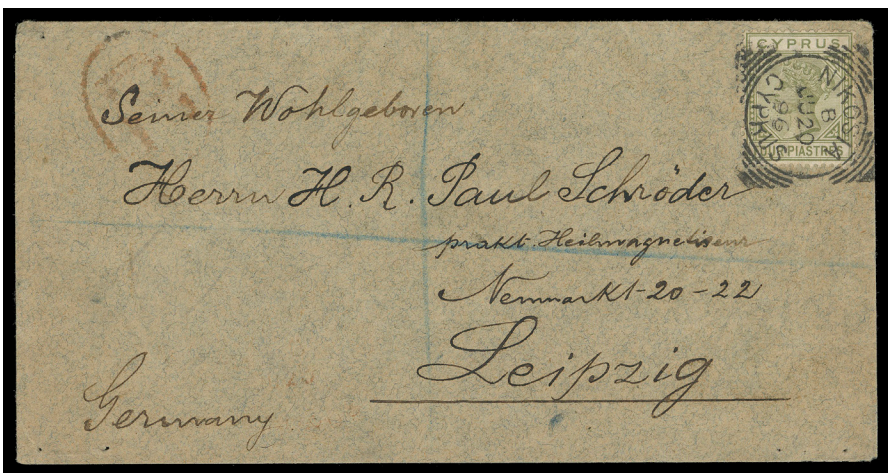 CYPRUS
NIKOSIA
B
JU 20
96
CYPRUS
FOUR PIASTRES
Seiner Wohlgeboren
Herrn H. R. Paul Schröder
prakt. Heilmagnetiseur
Neumarkt 20-22
Leipzig
Germany